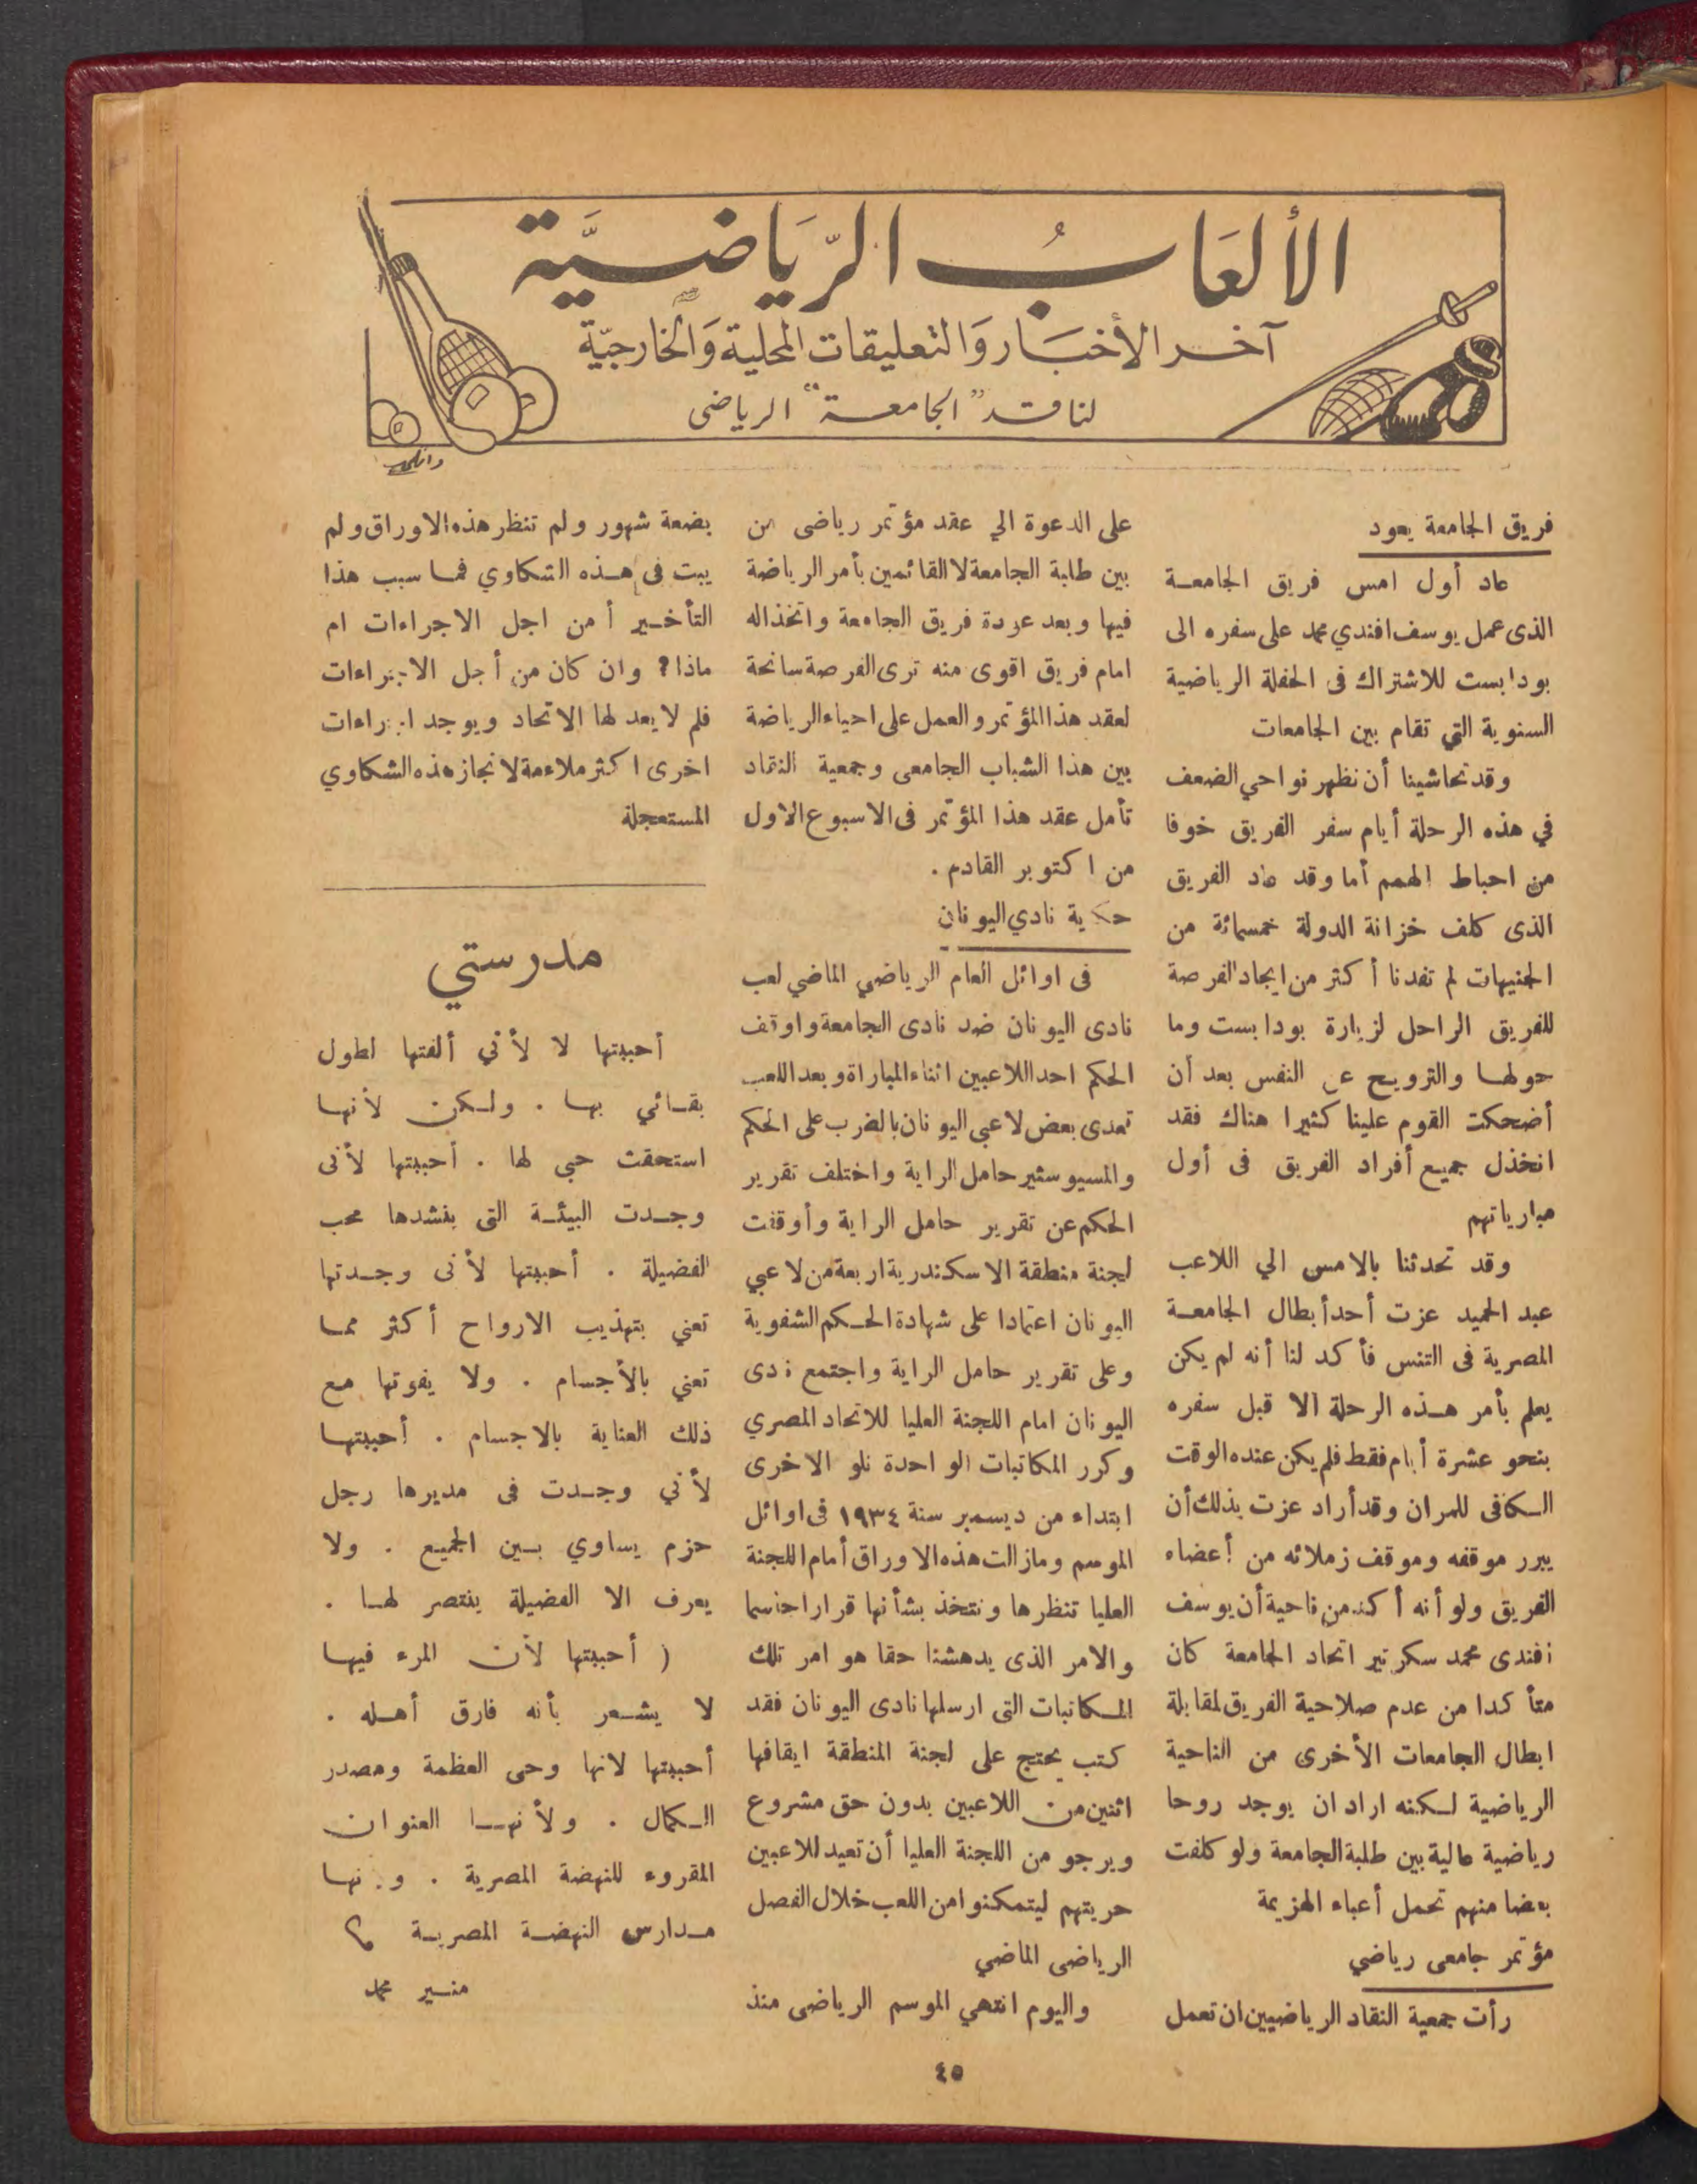 الألعَابُ الرّيَاضيَّة
آخر الأخبَار وَالتعليقات المحلية وَالخارجيّة
لناقد "الجامعة" الرياضى
فريق الجامعة يعود
عاد أول امس فريق الجامعة
الذى عمل يوسف افندي محمد على سفره الى
بودابست للاشتراك فى الحفلة الرياضية
السنوية التي تقام بين الجامعات
وقد تحاشينا أن نظهر نواحي الضعف
في هذه الرحلة أيام سفر الفريق خوفا
من احباط الهمم أما وقد عاد الفريق
الذى كلف خزانة الدولة خمسمائة من
الجنيهات لم تفدنا أكثر من ايجاد الفرصة
للفريق الراحل لزيارة بودابست وما
حولها والترويح عن النفس بعد أن
أضحكت القوم علينا كثيرا هناك فقد
انخذل جميع أفراد الفريق فى أول
مبارياتهم
وقد تحدثنا بالامس الي اللاعب
عبد الحميد عزت أحد أبطال الجامعة
المصرية فى التنس فأكد لنا أنه لم يكن
يعلم بأمر هذه الرحلة الا قبل سفره
بنحو عشرة أيام فقط فلم يكن عنده الوقت
الكافى للمران وقد أراد عزت بذلك أن
يبرر موقفه وموقف زملائه من أعضاء
الفريق ولو أنه أكد من ناحية أن يوسف
افندى محمد سكرتير اتحاد الجامعة كان
متأكدا من عدم صلاحية الفريق لمقابلة
ابطال الجامعات الأخرى من الناحية
الرياضية لكنه اراد ان يوجد روحا
رياضية عالية بين طلبة الجامعة ولو كلفت
بعضا منهم تحمل أعباء الهزيمة
مؤتمر جامعى رياضي
رأت جمعية النقاد الرياضيين ان تعمل
على الدعوة الي عقد مؤتمر رياضى من
بين طلبة الجامعة لا القائمين بأمر الرياضة
فيها وبعد عودة فريق الجامعة وانخذاله
امام فريق اقوى منه ترى الفرصة سانحة
لعقد هذا المؤتمر والعمل على احياء الرياضة
بين هذا الشباب الجامعى وجمعية النقاد
تأمل عقد هذا المؤتمر فى الاسبوع الاول
من اكتوبر القادم .
حكاية نادي اليونان
فى اوائل العام الرياضي الماضي لعب
نادى اليونان ضد نادى الجامعة واوقف
الحكم احد اللاعبين اثناء المباراة وبعد اللعب
تعدى بعض لاعبى اليونان بالضرب على الحكم
والمسيو سثير حامل الراية واختلف تقرير
الحكم عن تقرير حامل الراية وأوقفت
لجنة منطقة الاسكندرية اربعة من لاعبي
اليونان اعتمادا على شهادة الحكم الشفوية
وعلى تقرير حامل الراية واجتمع نادى
اليونان امام اللجنة العليا للاتحاد المصري
وكرر المكاتبات الواحدة تلو الاخرى
ابتداء من ديسمبر سنة ١٩٣٤ فى اوائل
الموسم ومازالت هذه الاوراق أمام اللجنة
العليا تنظرها وتتخذ بشأنها قرارا حاسما
والامر الذى يدهشنا حقا هو امر تلك
المكاتبات التى ارسلها نادى اليونان فقد
كتب يحتج على لجنة المنطقة ايقافها
اثنين من اللاعبين بدون حق مشروع
ويرجو من اللجنة العليا أن تعيد للاعبين
حريتهم ليتمكنوا من اللعب خلال الفصل
الرياضى الماضي
واليوم انتهي الموسم الرياضى منذ
بضعة شهور ولم تنظر هذه الاوراق ولم
يبت فى هذه الشكاوي فما سبب هذا
التأخير أمن اجل الاجراءات ام
ماذا؟ وان كان من أجل الاجراءات
فلم لا يعد لها الاتحاد ويوجد اجراءات
اخرى اكثر ملاءمة لانجاز هذه الشكاوي
المستعجلة
مدرستي
أحببتها لا لأني ألفتها لطول
بقائي بها . ولكن لأنها
استحقت حبي لها . أحببتها لأنى
وجدت البيئة التى ينشدها محب
الفضيلة . أحببتها لأنى وجدتها
تعني بتهذيب الارواح أكثر مما
تعني بالأجسام . ولا يفوتها مع
ذلك العناية بالاجسام . أحببتها
لأني وجدت فى مديرها رجل
حزم يساوي بين الجميع . ولا
يعرف الا الفضيلة ينتصر لها .
( أحببتها لأن المرء فيها
لا يشعر بأنه فارق أهله .
أحببتها لانها وحى العظمة ومصدر
الكمال . ولأنها العنوان
المقروء للنهضة المصرية . وانها
مدارس النهضة المصرية
منير محمد
٤٥